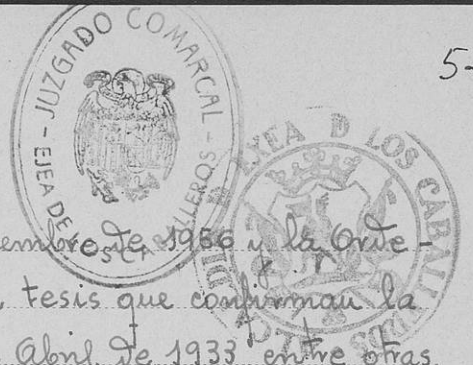 5-
JUZGADO COMARCAL - EJEA DE LOS CABALLEROS -
EXEA D LOS CABALLEROS
embre de 1956 y la Orde-
tesis que confirman la
Abril de 1933 entre otras